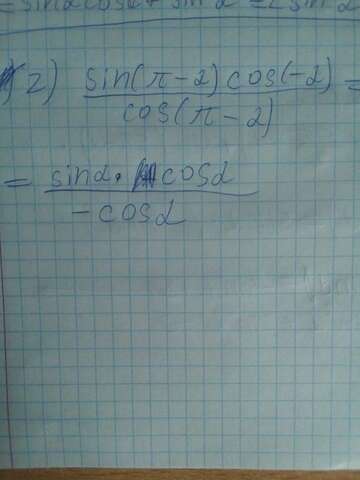 = sinαcosα + sinα = 2 sinα
2) sin(π-α) cos(-α) =
cos(π-α)
= sinα · cosα
-cosα